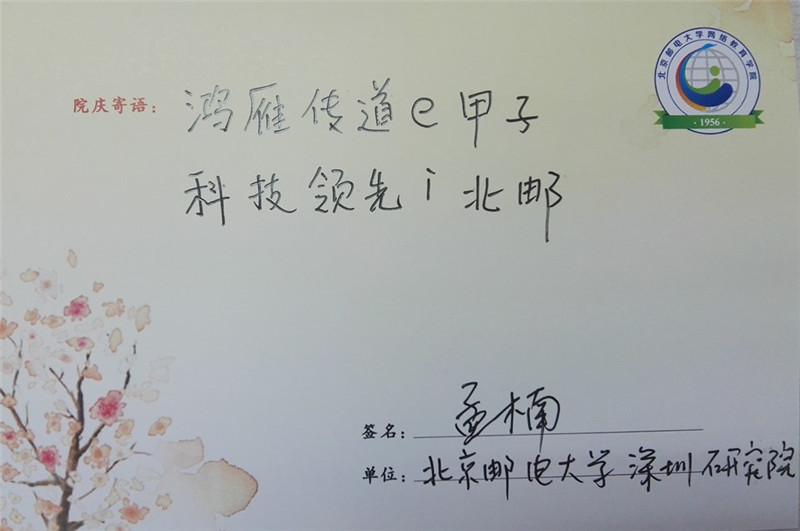 北京邮电大学网络教育学院
·1956·
院庆寄语：鸿雁传道e甲子
科技领先i北邮
签名：孟楠
单位：北京邮电大学深圳研究院